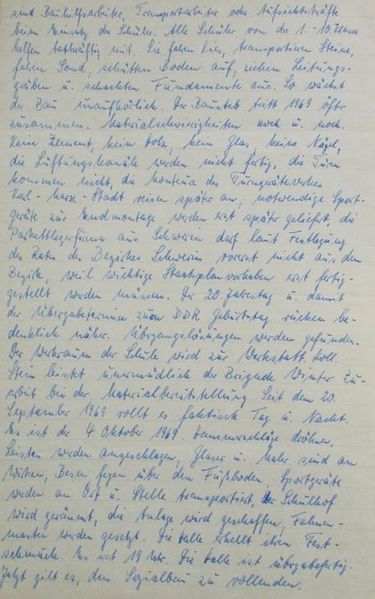 sind Bauhilfsarbeiter, Transportarbeiter oder Aufsichtskräfte
beim Einsatz der Schüler. Alle Schüler von der 1.-10. Klasse
helfen tatkräftig mit. Sie fahren Kies, transportieren Steine,
fahren Sand, schütten Boden auf, ziehen Leitungs-
gräben u. schachten Fundamente aus. So wächst
der Bau unaufhörlich. Der Baustab tritt 1969 öfter
zusammen. Materialschwierigkeiten noch u. noch.
Kein Zement, kein Holz, kein Glas, keine Nägel,
die Lüftungskanäle werden nicht fertig, die Türen
kommen nicht, die Monteure des Turngerätewerkes
Karl-Marx-Stadt reisen später an, notwendige Sport-
geräte zur Endmontage werden erst später geliefert, die
Parkettlegerfirma aus Schwerin darf laut Festlegung
des Rates des Bezirkes Schwerin vorerst nicht aus dem
Bezirk, weil wichtige Staatsplanvorhaben erst fertig-
gestellt werden müssen. Der 20. Jahrestag u. damit
der Übergabetermin zum DDR Geburtstag rücken be-
denklich näher. Übergangslösungen werden gefunden.
Der Werkraum der Schule wird zur Werkstatt. Koll.
Stein leistet unermüdlich der Brigade Winter Zu-
arbeit bei der Materialbereitstellung. Seit dem 20.
September 1969 rollt es faktisch Tag u. Nacht.
Es ist der 4. Oktober 1969. Hammerschläge dröhnen.
Leisten werden angeschlagen, Glaser u. Maler sind am
Wirken, Besen fegen über den Fußboden, Sportgeräte
werden an Ort u. Stelle transportiert, der Schulhof
wird geräumt, die Anlage wird geschaffen, Fahnen-
masten werden gesetzt. Die Halle erhält ihren Fest-
schmuck. Es ist 19 Uhr. Die Halle ist übergabefertig.
Jetzt gilt es, den Sozialbau zu vollenden.